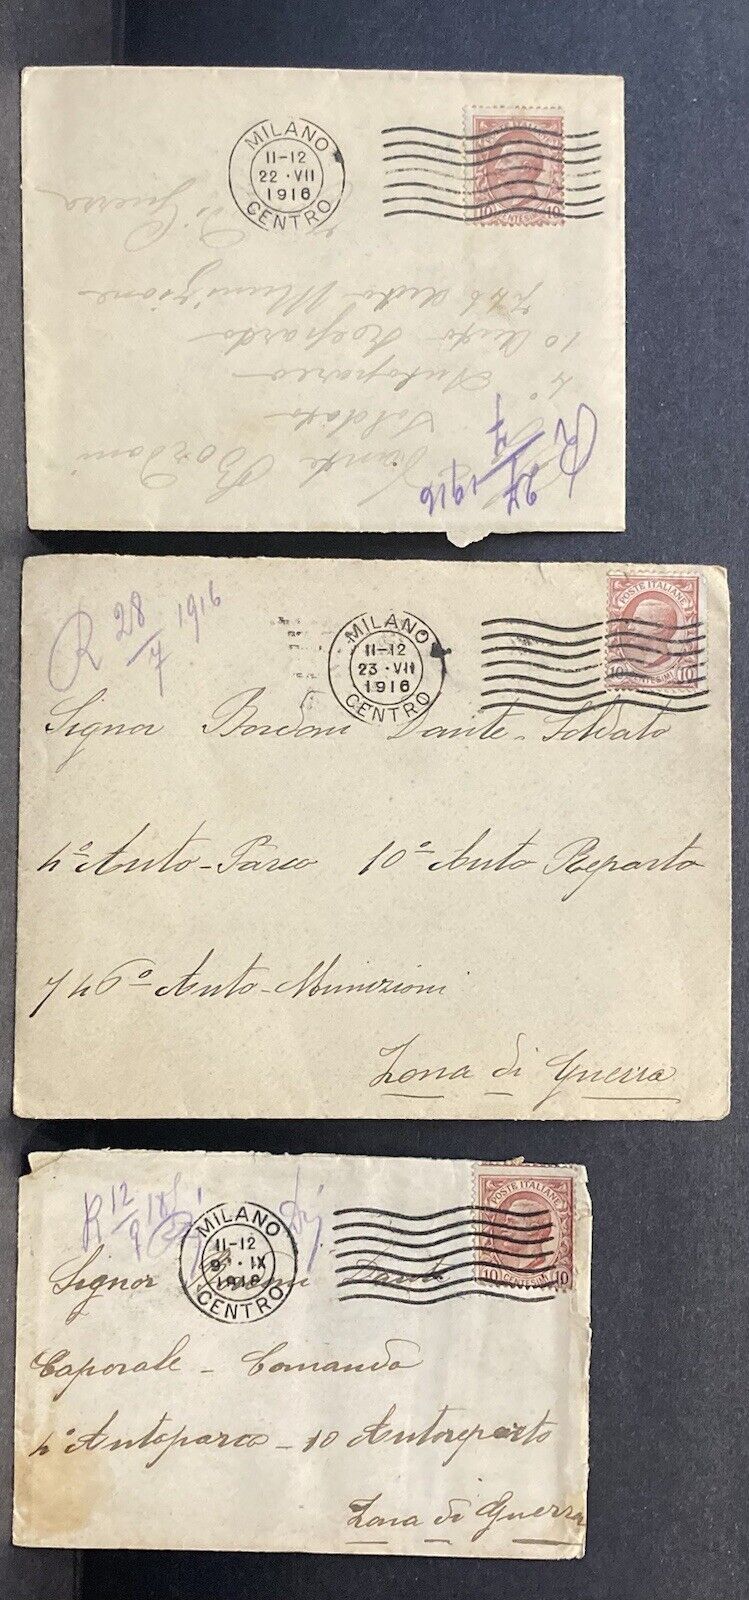 MILANO
11-12
22 · VII
1916
CENTRO
10 CENTESIMI 10
Dante Bordoni
Soldato
4° Autoparco
10 Auto Reparto
Auto Munizione
Di Guerra
R 27/7 1916
R 28/7 1916
MILANO
11-12
23 · VII
1916
CENTRO
POSTE ITALIANE
10 CENTESIMI 10
Signor Bordoni Dante - Soldato
4° Auto-Parco 10° Auto Reparto
746° Auto-Munizioni
Zona di Guerra
R 12/9
MILANO
11-12
9 · IX
1916
CENTRO
POSTE ITALIANE
10 CENTESIMI 10
Signor Dante
Caporale - Comando
4° Autoparco - 10 Autoreparto
Zona di Guerra